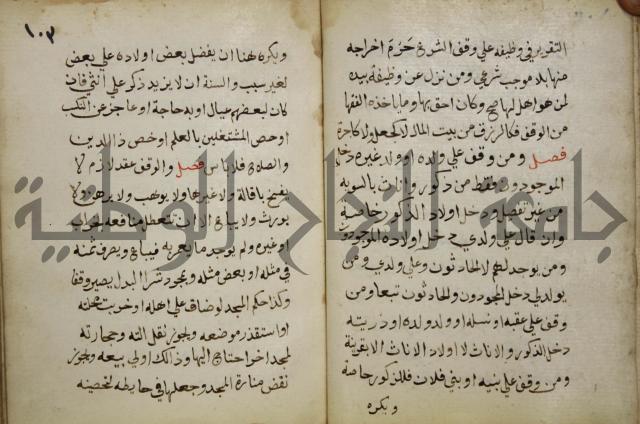 التقرير في وظيفة علي وقف الشرع حَرُمَ اخراجه
منها بلا موجب شرعي ومن نزل عن وظيفة بيده
لمن هو اهل لها صح وكان احق بها وما ياخذه الفقها
من الوقف فكالرزق من بيت المال لا كجعل ولا كاجرة
فصل ومن وقف علي ولده او ولد غيره دخل
الموجودون فقط من ذكور واناث بالسوية
من غير تفضيل ودخل اولاد الذكور خاصة
وان قال علي ولدي دخل اولاده الموجودون
ومن يوجد لهم لا الحادثون وعلي ولدي ومن
يولد لي دخل الموجودون والحادثون تبعا ومن
وقف علي عقبه او نسله او ولد ولده او ذريته
دخل الذكور والاناث لا اولاد الاناث الا بقرينة
ومن وقف علي بنيه او بني فلان فللذكور خاصة
ويكره
١٠٣
ويكره هنا ان يفضل بعض اولاده علي بعض
لغير سبب والسنة ان لا يزيد ذكر علي انثي فان
كان لبعضهم عيال او به حاجة او عاجز عن التكسب
او خص المشتغلين بالعلم او خص ذا الدين
والصلاح فلا باس فصل والوقف عقد لازم لا
يفسخ باقالة ولا غيرها ولا يوهب ولا يرهن ولا
يورث ولا يباع الا ان تتعطل منافعه بخراب
او غيره ولم يوجد ما يعمر به فيباع ويصرف ثمنه
في مثله او بعض مثله وبمجرد شرا البدل يصير وقفا
وكذا حكم المسجد لو ضاق علي اهله او خربت محلته
او استقذر موضعه ويجوز نقل آلته وحجارته
لمسجد اخر احتاج اليها وذلك اولي من بيعه ويجوز
نقض منارة المسجد وجعلها في حايطه لتحصينه
جامعة النجاح الوطنية